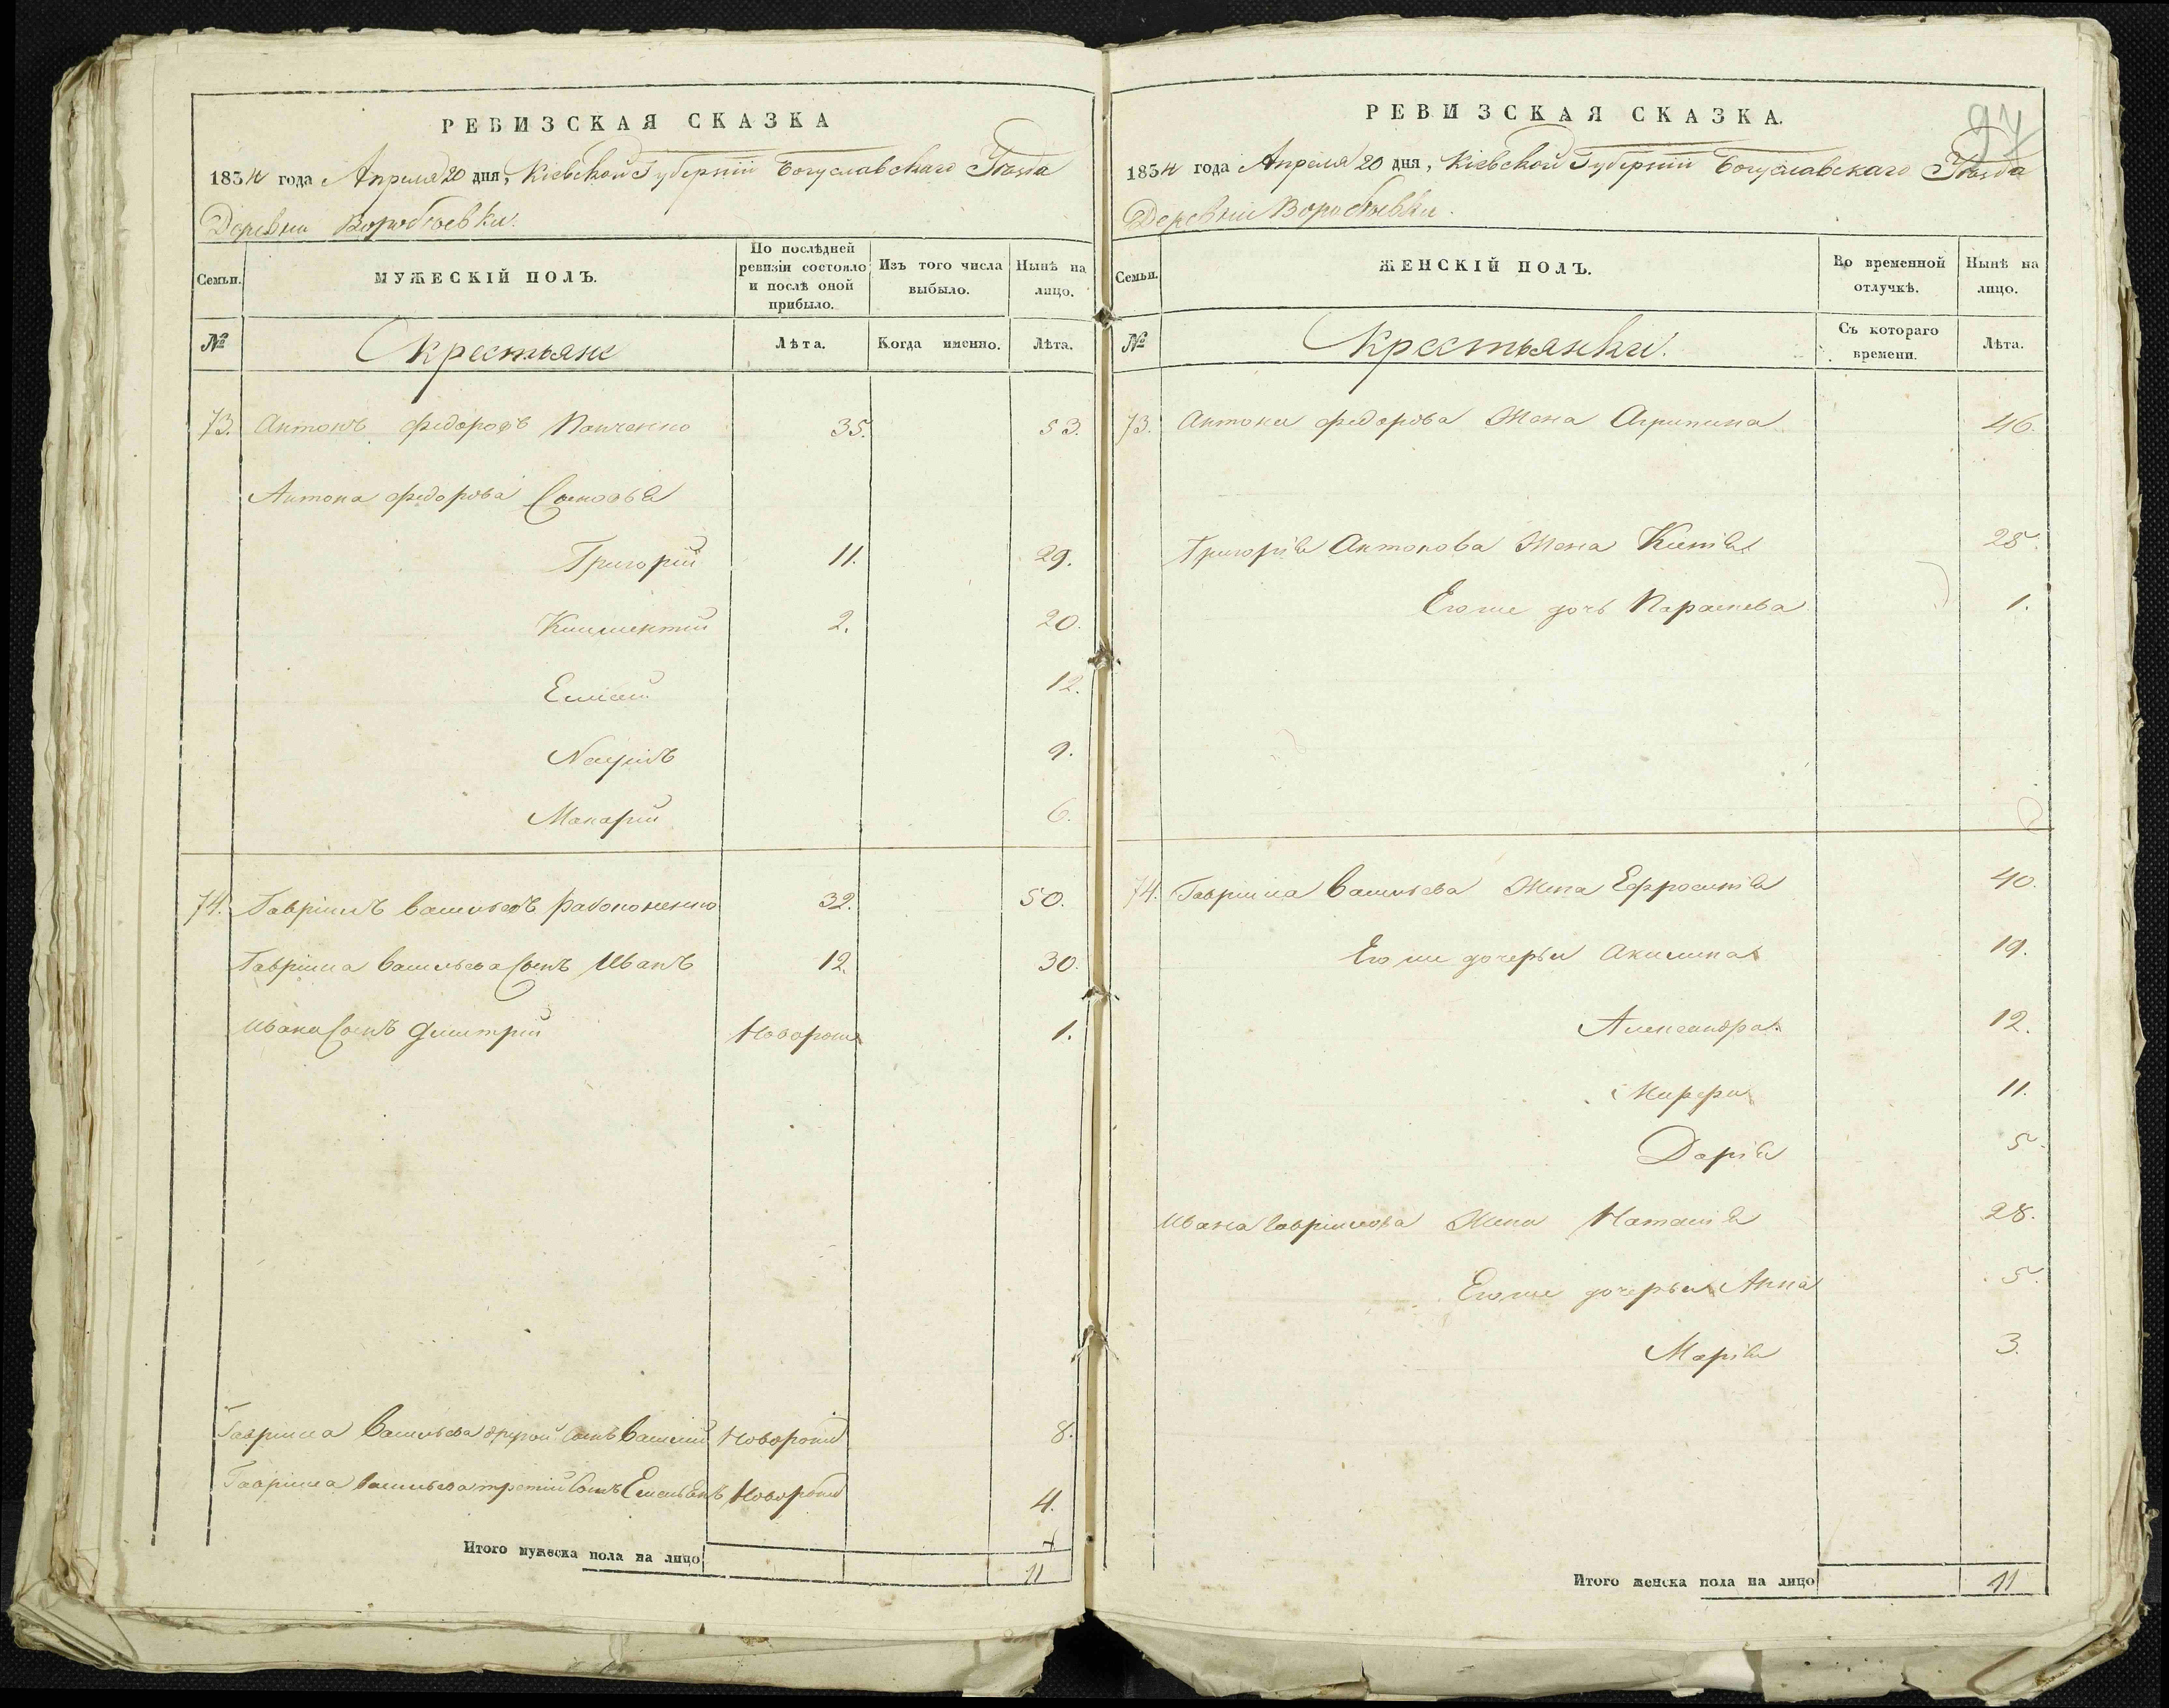 РЕВИЗСКАЯ СКАЗКА
1834 года Апреля 20 дня, Кіевской Губерніи Богуславскаго Уѣзда
Деревни Воробіевки.
Семьи.
МУЖЕСКІЙ ПОЛЪ.
По послѣдней ревизіи состояло и послѣ оной прибыло.
Изъ того числа выбыло.
Нынѣ на лицо.
№
Крестьяне
Лѣта.
Когда именно.
Лѣта.
73. Антонъ федоровъ Панченко 35. 53.
Антона федорова Сыновья
Григорій 11. 29.
Климентій 2. 20.
Елисей 12.
Наумъ 9.
Макарій 6.
74. Гавріилъ васильевъ 32. 50.
Гавріила васильева Сынъ Иванъ 12. 30.
Ивана Сынъ Дмитрій Новорожд 1.
Гавріила Васильева другой Сынъ Василій Новорожд 8.
Гавріила васильева третій Сынъ Емельянъ Новорожд 4.
Итого мужеска пола на лицо 11
РЕВИЗСКАЯ СКАЗКА.
97
1834 года Апреля 20 дня, Кіевской Губерніи Богуславскаго Уѣзда
Деревни Воробіевки.
Семьи.
ЖЕНСКІЙ ПОЛЪ.
Во временной отлучкѣ.
Нынѣ на лицо.
№
Крестьянки.
Съ котораго времени.
Лѣта.
73. Антона федорова Жена Агрипина 46.
Григорія Антонова Жена 25.
Его же дочь Параскева 1.
74. Гавріила Васильева Жена Ефросинія 40.
Его же дочерьи Акилина 19.
Александра 12.
11.
Дарія 5.
Ивана Гавріилова Жена Наталія 28.
Его же дочерьи Анна 5.
Марія 3.
Итого женска пола на лицо 11